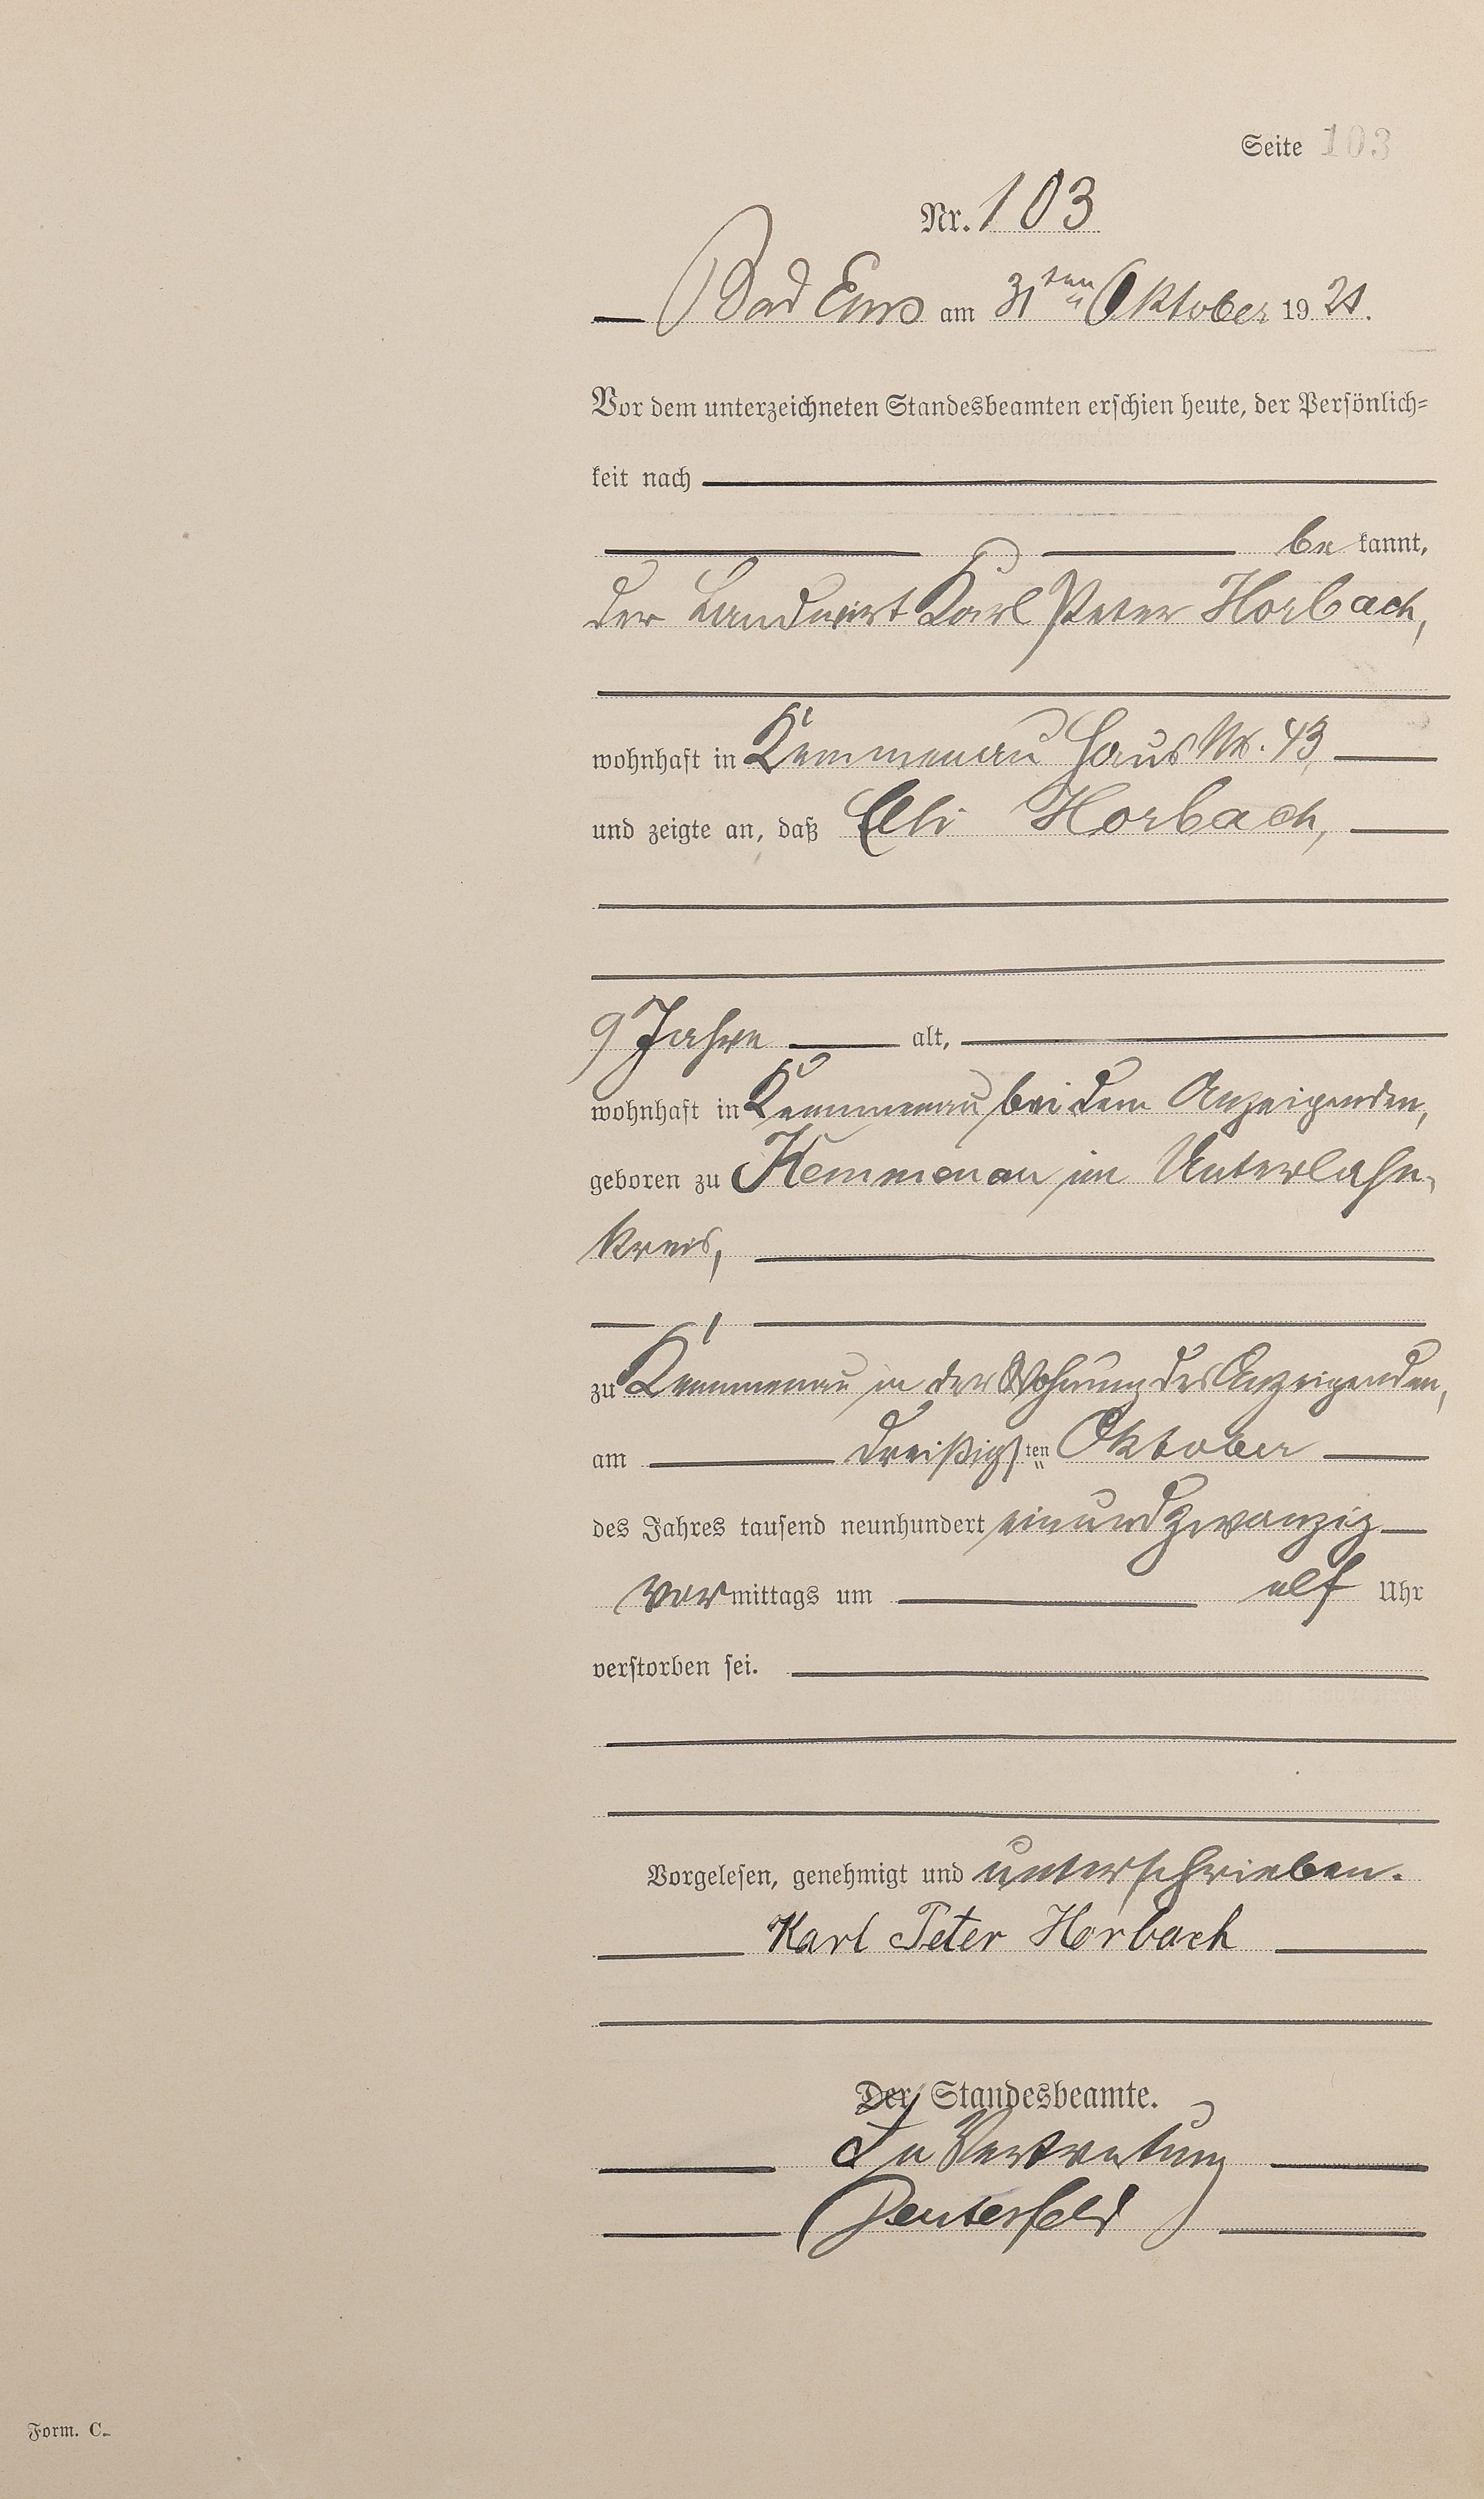 Seite 103
Nr. 103
Bad Ems am 31ten Oktober 1921.
Vor dem unterzeichneten Standesbeamten erschien heute, der Persönlich-
keit nach
be kannt,
der Landwirt Karl Peter Horbach,
wohnhaft in Kemmenau Haus Nr. 43,
und zeigte an, daß Eli Horbach,
9 Jahre alt,
wohnhaft in Kemmenau bei dem Anzeigenden,
geboren zu Kemmenau im Unterlahn-
kreis,
zu Kemmenau in der Wohnung des Anzeigenden,
am dreißigsten Oktober
des Jahres tausend neunhundert einundzwanzig
vormittags um elf Uhr
verstorben sei.
Vorgelesen, genehmigt und unterschrieben.
Karl Peter Horbach
Der Standesbeamte.
In Vertretung
Form. C.